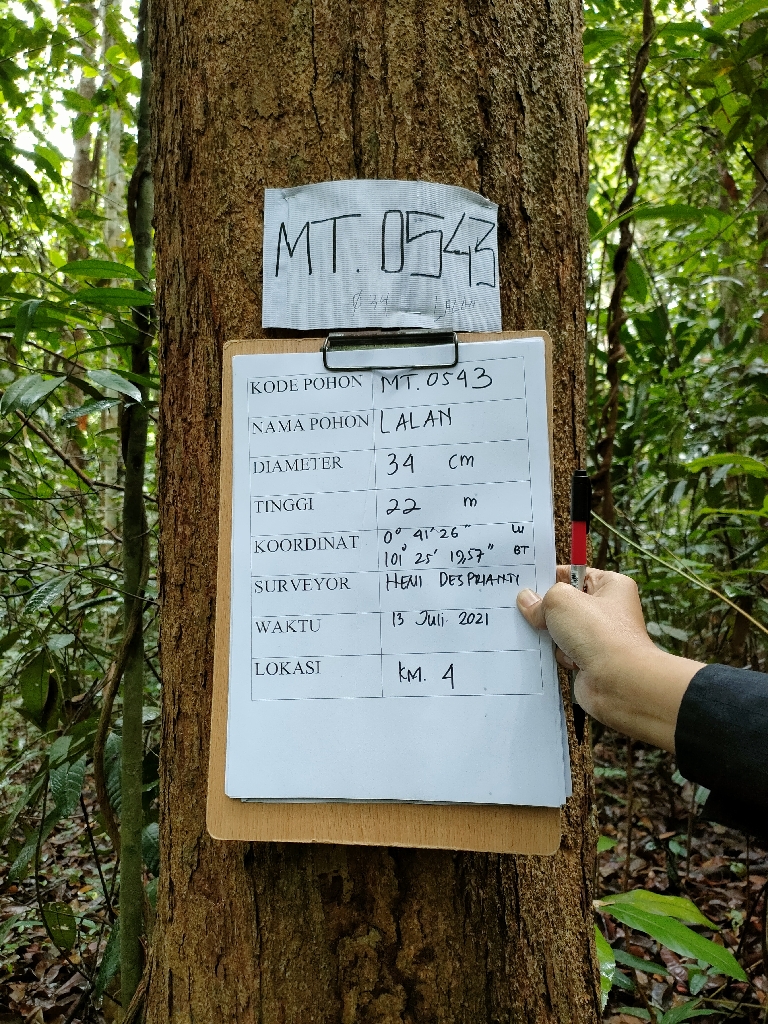 MT. 0543
Ø 34 LALAN
KODE POHON MT. 0543
NAMA POHON LALAN
DIAMETER 34 cm
TINGGI 22 m
KOORDINAT 0° 41' 26" LU
101° 25' 19,57" BT
SURVEYOR HENI DESPRIANTI
WAKTU 13 Juli 2021
LOKASI KM. 4